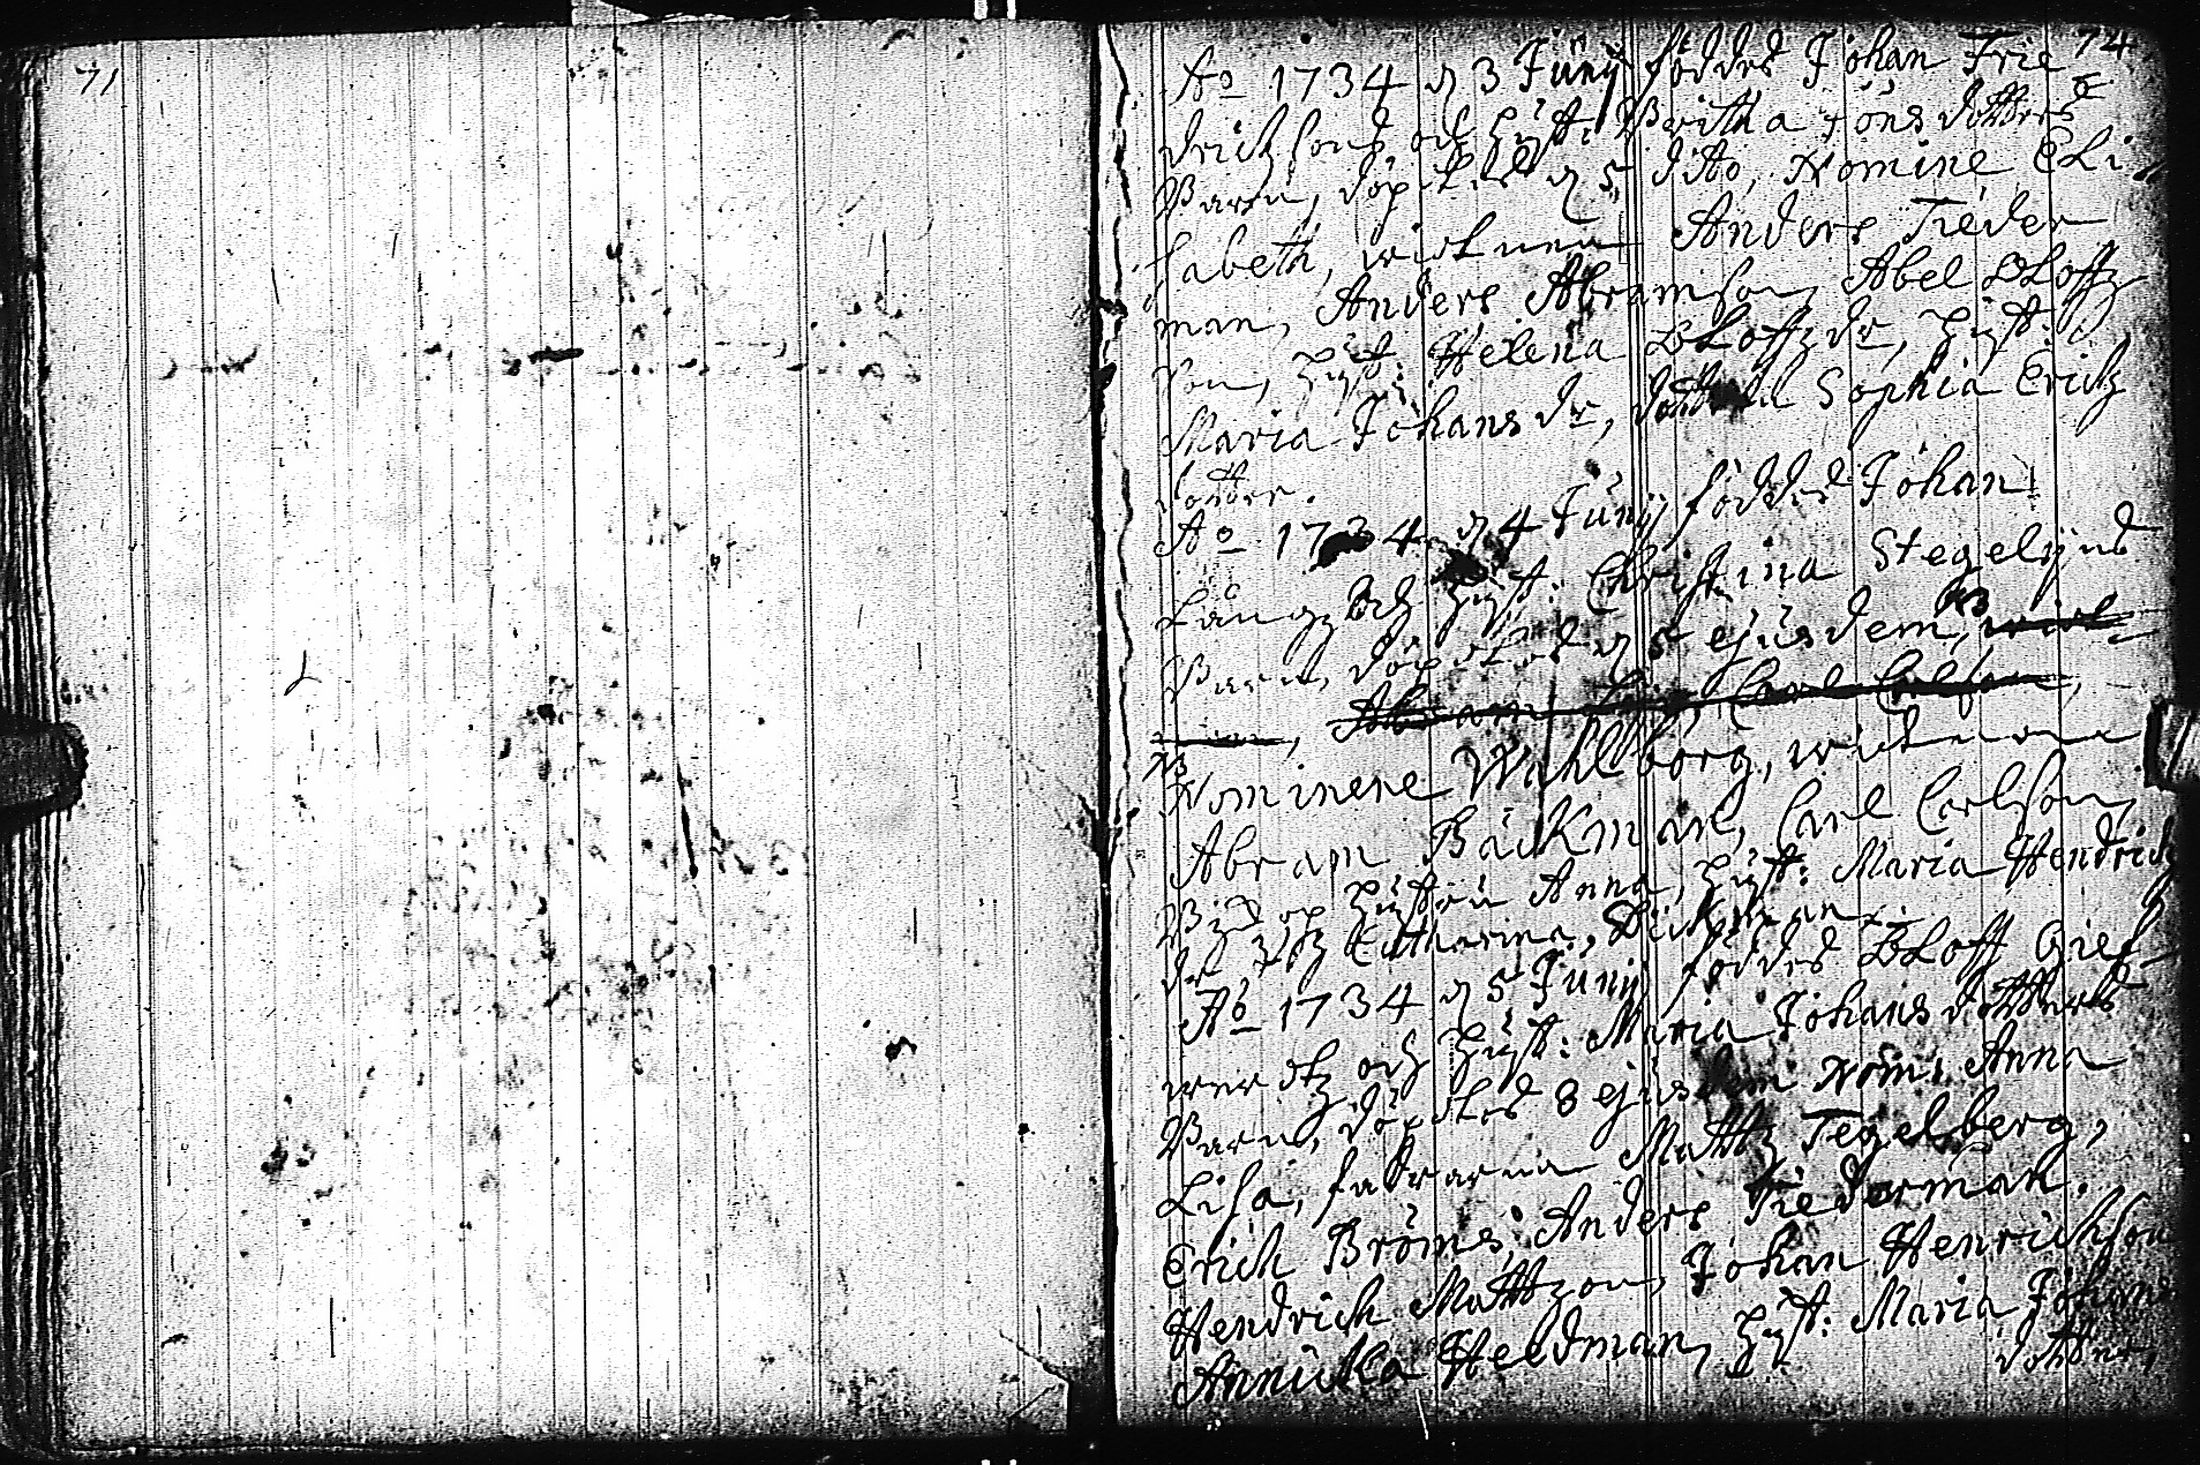 71
74
Ao 1734 d 3 Junÿ föddes Johan Frie
drichsons och Hust: Britha Jönsdotters
Barn, döptes d 5 dito, Nomine Eli
sabeth, wittnen Anders Tieder
man, Anders Abramson, Abel Oloffz
son, Hust: Helena Oloffzdr, Hust:
Maria Johansdr, Sophia Erichz
dotter.
Ao 1734 d 4 Junÿ föddes Johan
Långz och Hust: Christina Stegelÿns
Barn, döptes d 5 ejusdem, witt
nen, Abram Carl Carlson,
NB
Nominere Wahlborg, wittnen
Abram Bäckman, Carl Carlson,
Hustru Anna, Hust: Maria Hendrichz
dr Catharina Bäckman.
Ao 1734 d 5 Junÿ föddes Oloff Gief
wertz och Hust: Maria Johansdotters
Barn, döptes 8 ejusdem Nom: Anna
Lisa, faddrarna Mattz Tegelberg,
Erich Bröms, Anders Tiederman.
Hendrich Mattzon, Johan Henrichson
Annicka Heedman, Hust: Maria Johans
dotter,